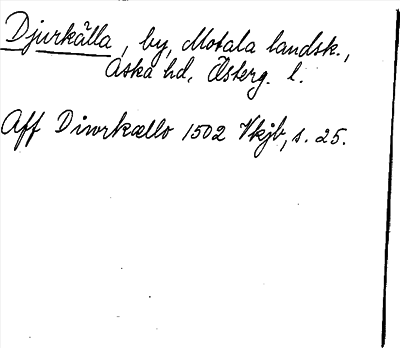 Djurkälla, by, Motala landsk.,
Aska hd, Österg. l.
Aff Diwrkællo 1502 Vkjb, s. 25.